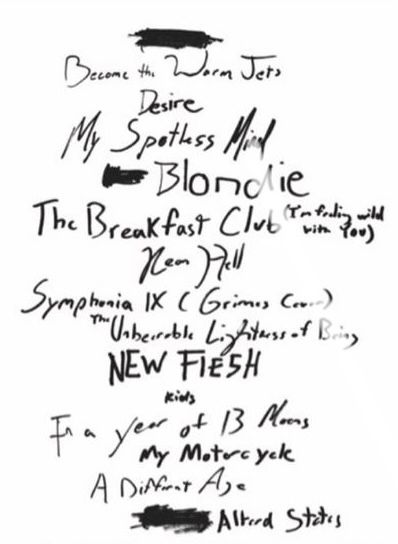 Become the Warm Jets
Desire
My Spotless Mind
Blondie
The Breakfast Club (I'm feeling wild
with You)
Neon Hell
Symphonia IX (Grimes Cover)
The Unbearable Lightness of Being
NEW FlESH
Kids
In a year of 13 Moons
My Motorcycle
A Different Age
Altered States